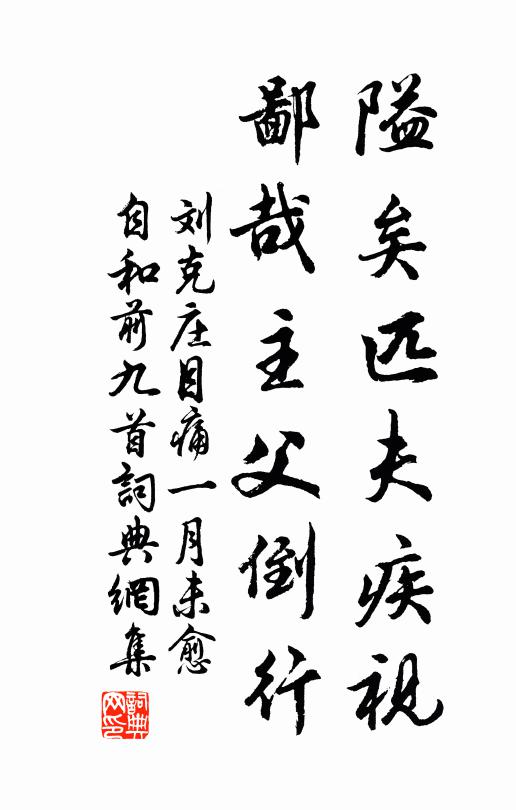 隘矣匹夫疾視
鄙哉主父倒行
刘克庄目痛一月未愈
自和前九首詞典網集
詞典网印